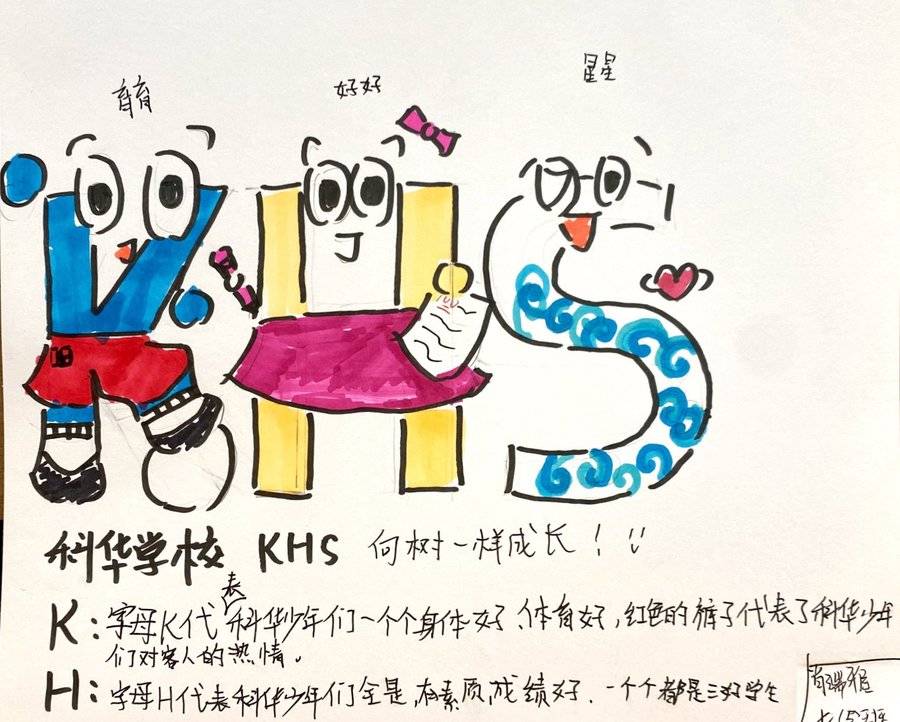 育育
好好
星星
科华学校 KHS 向树一样成长！
K：字母K代表科华少年们一个个身体好、体育好，红色的裤子代表了科华少年
们对客人的热情。
H：字母H代表科华少年们全是有素质成绩好、一个个都是三好学生